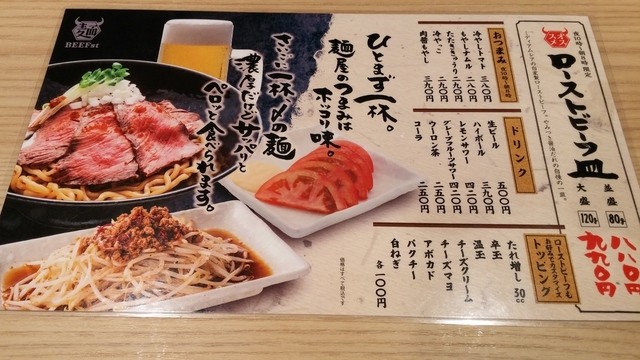 オススメ
夜10時~朝5時限定
ローストビーフ皿
並盛 80g 八八〇円
大盛 120g 九九〇円
おつまみ
冷やしトマト 三八〇
もやしナムル 二八〇
たたききゅうり 二九〇
冷やっこ 二九〇
肉醤もやし 三九〇
ドリンク
生ビール 五〇〇
ハイボール 三九〇
レモンサワー 四二〇
グレープフルーツサワー 四二〇
ウーロン茶 二五〇
コーラ 二五〇
ローストビーフも
お好みでカスタマイズ
トッピング
たれ増し 30cc
卒玉
温玉
チーズクリーム
チーズマヨ
アボカド
パクチー
白ねぎ
各一〇〇円
価格はすべて税込です
ひとまず一杯。
麺屋のつまみは
ホッコリ味。
さいごに一杯〆の麺
濃厚だけどサッパリと
ペロッと食べられます。
BEEFst